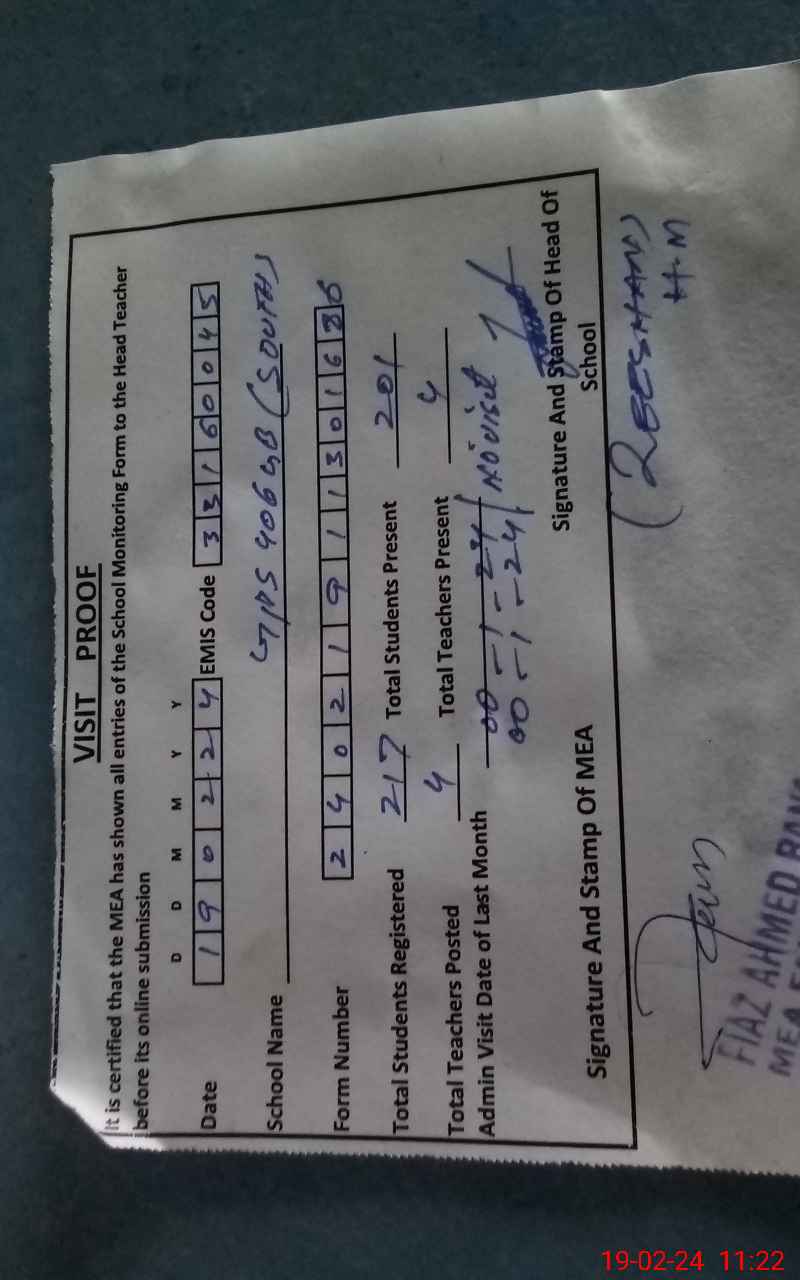 VISIT PROOF
It is certified that the MEA has shown all entries of the School Monitoring Form to the Head Teacher
before its online submission
D D M M Y Y
Date 190224 EMIS Code 33160045
School Name GPS 406 GB (SOUTH)
Form Number 2402191130163
Total Students Registered 217 Total Students Present 201
Total Teachers Posted 4 Total Teachers Present 4
Admin Visit Date of Last Month 00-1-24 / NO visit
00-1-24
Signature And Stamp Of MEA Signature And Stamp Of Head Of
School
(ZEESHAN)
H.M
FIAZ AHMED
MEA
19-02-24 11:22